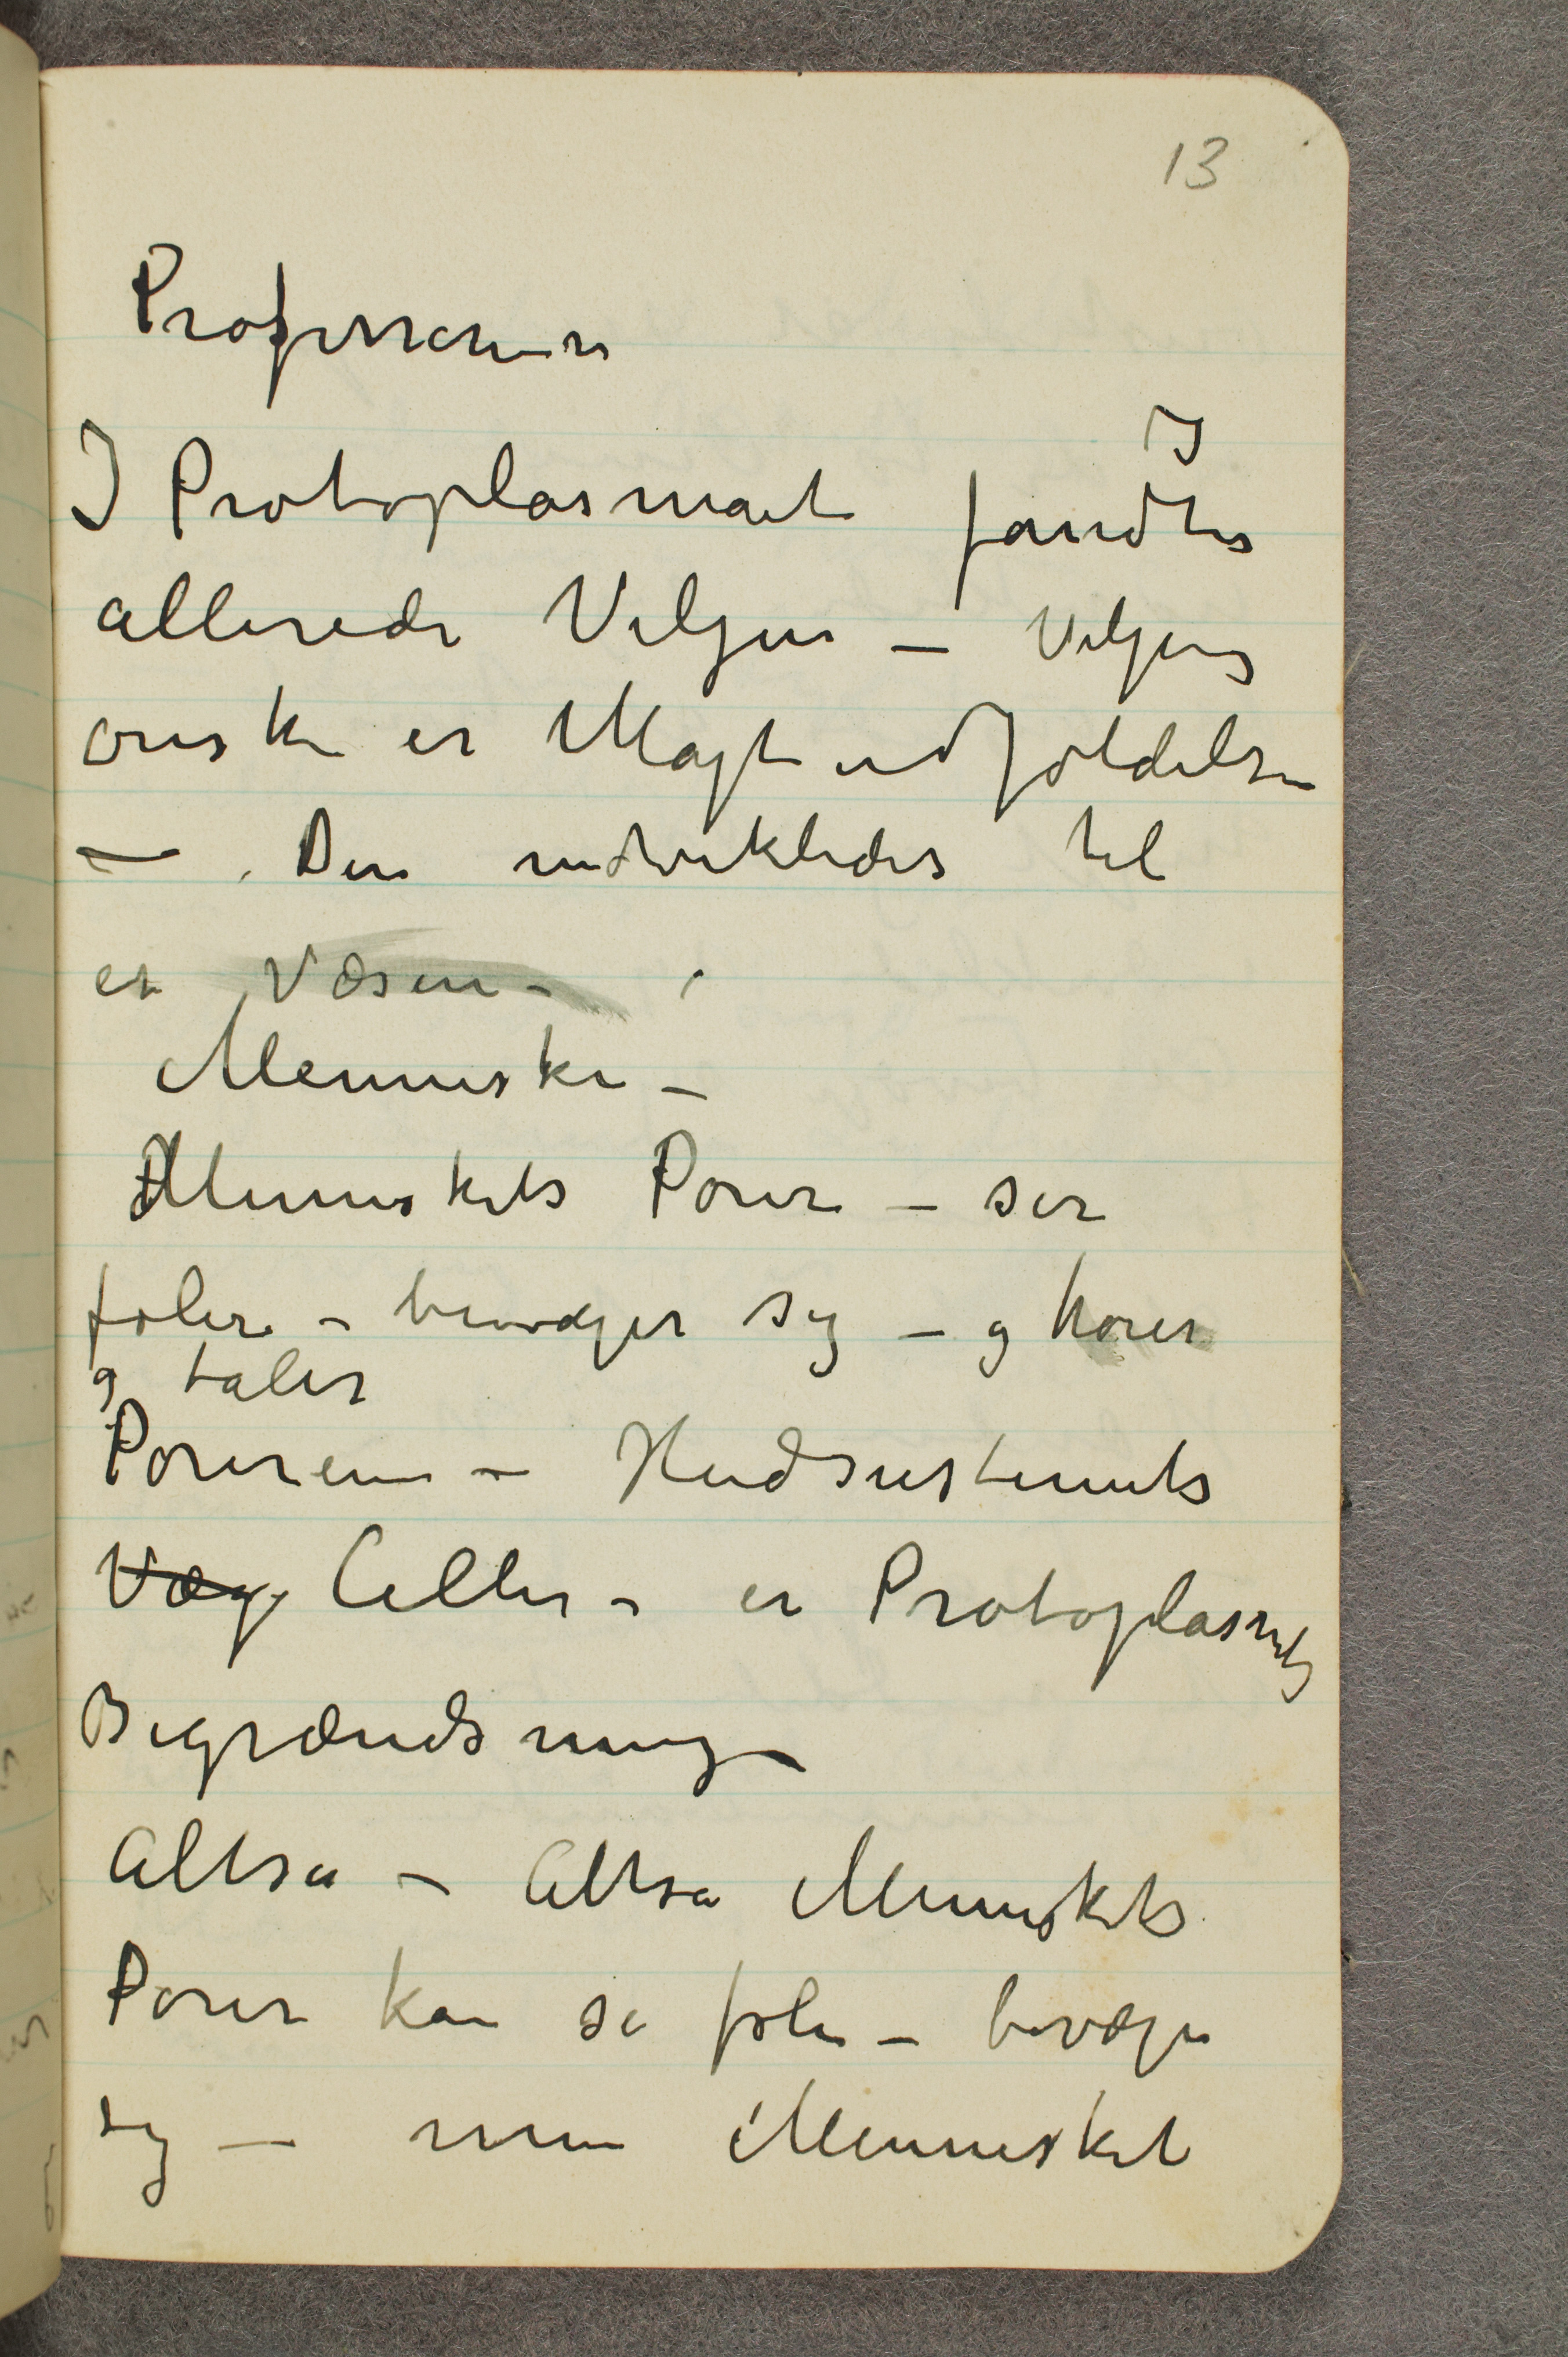 13
Professoren
I
I Protoplasmaet fandtes
allerede Viljen – Viljens
ønske er Magtudfoldelse
– Den undvikledes til
et Væsen –
Menneske –
Menneskets Porer – ser
føler – bevæger sig – og hører
og taler
Porerene – Hudsustemets
Væg Celler – er Protoplasmets
Begrændsning –
Altså – Altså Menneskets
Porer kan se føle – bevæge
sig – men Mennesket